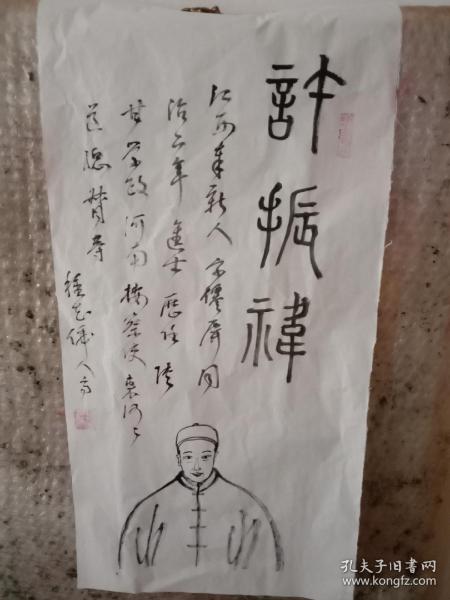 許振禕
江西奉新人 字僊屏 同
治二年進士 歷任陝
甘學政 河南按察使 東河
道總督等
孔夫子旧书网
www.kongfz.com